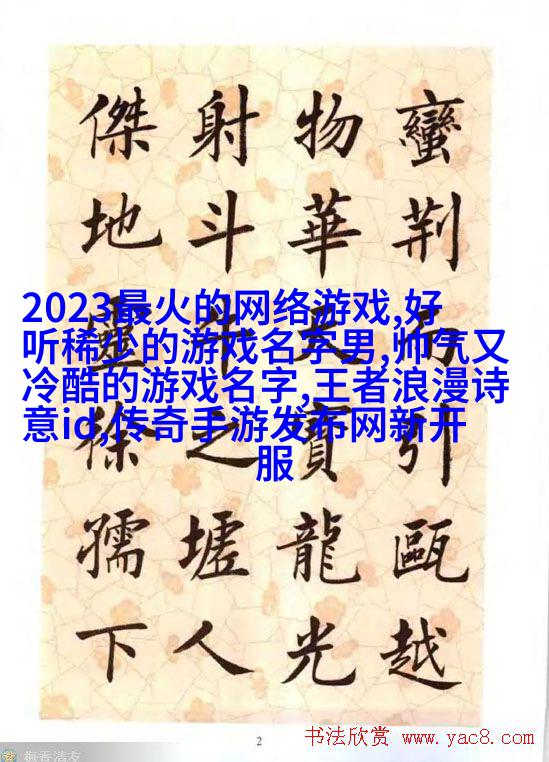 蠻荆而引甌越
物華天寶龍光
射斗牛之墟人
傑地靈徐孺下
2023最火的网络游戏,好
听稀少的游戏名字男,帅气又
冷酷的游戏名字,王者浪漫诗
意id,传奇手游发布网新开
服
2
书法欣赏 www.yac8.com
梅香清友